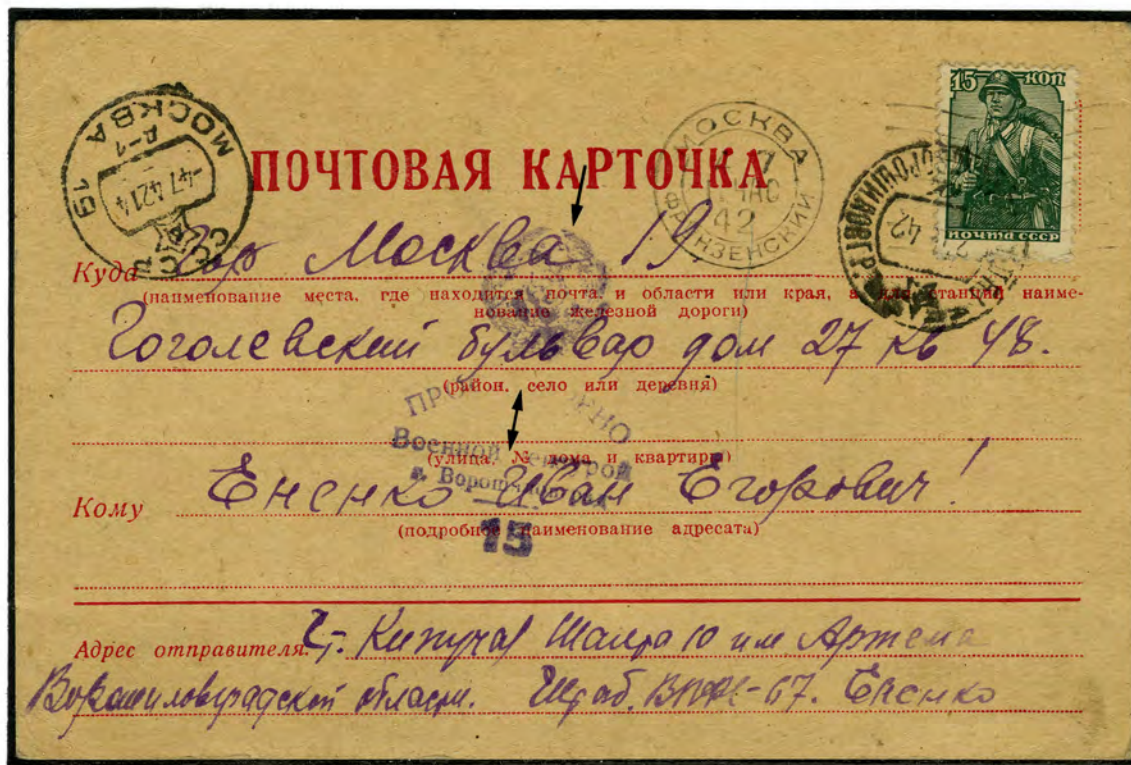 15 КОП
ПОЧТА СССР
МОСКВА 19
Д-1
-4 7 42 14
СССР
МОСКВА
42
ФРУНЗЕНСКИЙ
ПОЧТОВАЯ КАРТОЧКА
Куда Гор Москва 19,
(наименование места, где находится почта, и области или края, а для станций наиме-
нование железной дороги)
Гоголевский бульвар дом 27 кв 48.
(район, село или деревня)
ПРОСМОТРЕНО
Военной Цензурой
г. Ворошиловград
15
(улица, № дома и квартиры)
Кому Ененко Иван Егорович!
(подробное наименование адресата)
Адрес отправителя: Шахта 10 им Артема
Ворошиловградской области. Штаб. Ененко